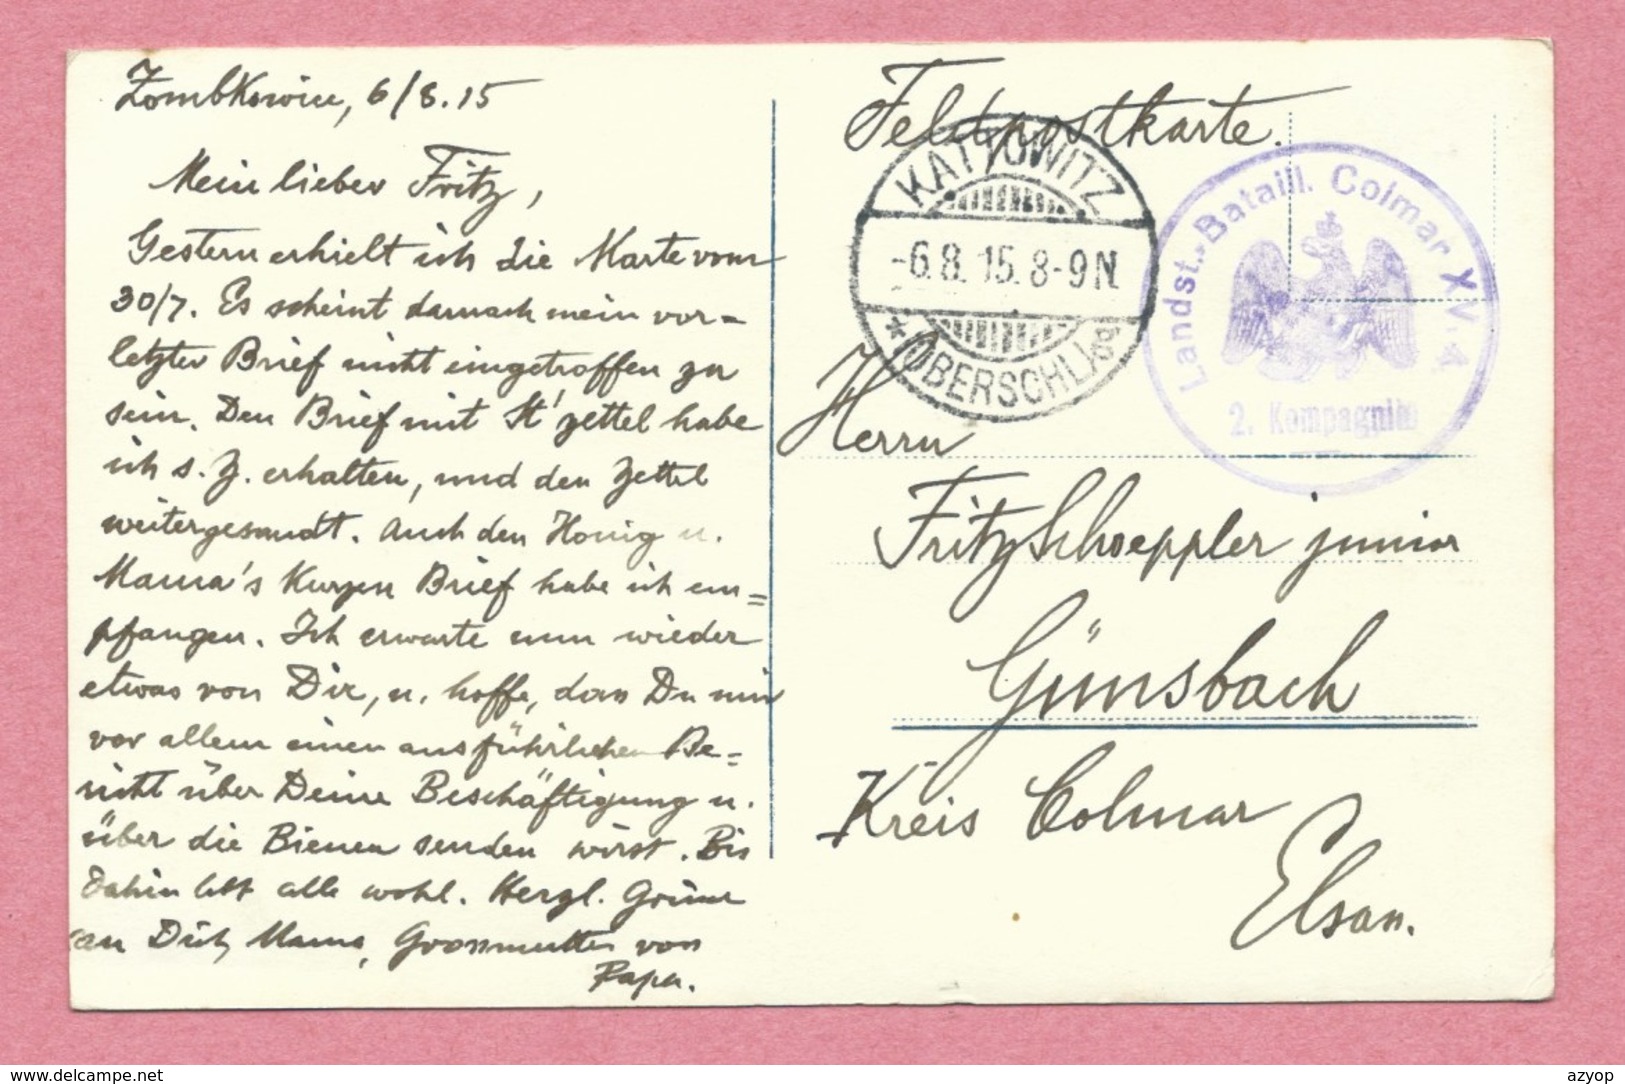 Zombkowice, 6/8.15
Mein lieber Fritz,
Gestern erhielt ich die Karte vom
30/7. Es scheint darnach mein vor=
letzter Brief nicht eingetroffen zu
sein. Den Brief mit St'zettel habe
ich s. Z. erhalten, und den Zettel
weitergesandt. Auch den Honig u.
Mama's kurzen Brief habe ich em=
pfangen. Ich erwarte nun wieder
etwas von Dir, u. hoffe, dass Du mir
vor allem einen ausführlichen Be=
richt über Deine Beschäftigung u.
über die Bienen senden wirst. Bis
dahin lebt alle wohl. Herzl. Grüsse
an Dich, Mama, Grossmutter von
Papa.
Feldpostkarte.
KATTOWITZ
-6.8.15.8-9N.
* (OBERSCHL.) *
Landst.-Bataill. Colmar XV. 4.
2. Kompagnie
Herrn
Fritz Schoeppler junior
Günsbach
Kreis Colmar
Elsass.
www.delcampe.net
azyop